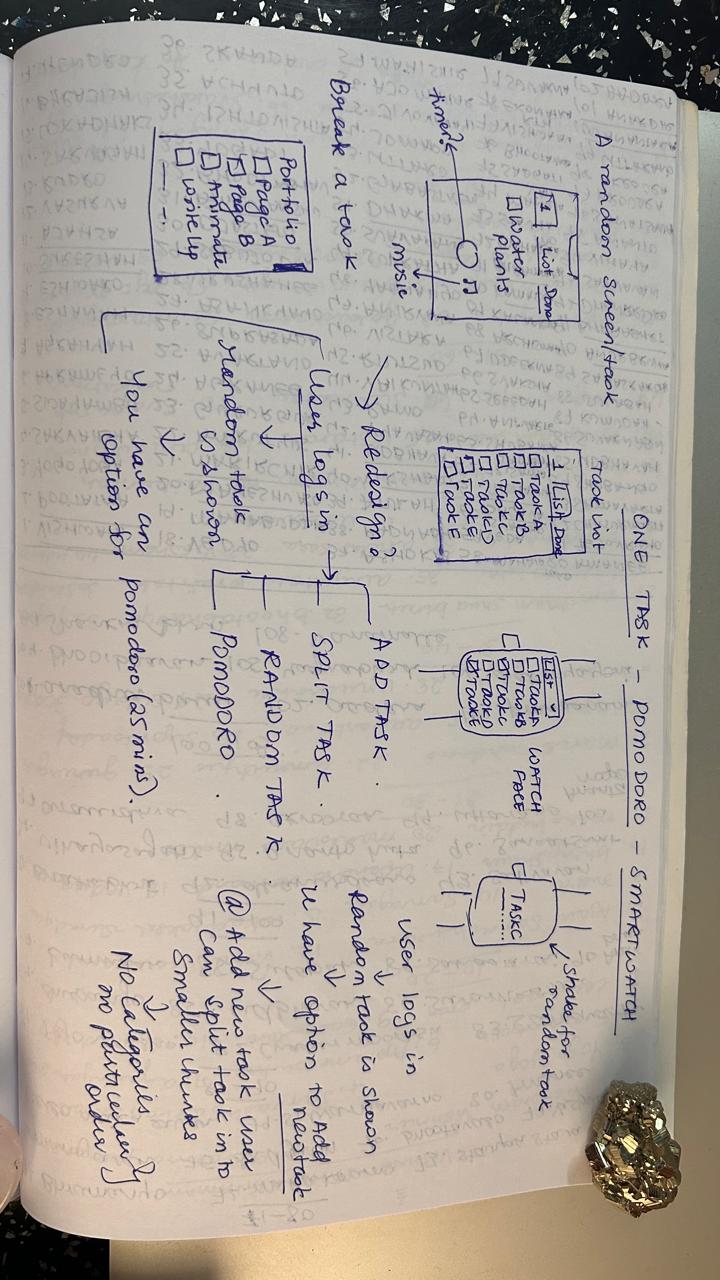 ONE TASK - POMODORO - SMARTWATCH
A random screen/task
1 List Done
Water
Plants
timer?
music
Task List
1 List Done
Task A
Task B
Task C
Task D
Task E
Task F
List
Task A
Task B
Task C
Task D
Task E
WATCH
FACE
TASK C
shake for
random task
Redesign?
Break a task
Portfolio
Page A
Page B
Animate
Write Up
User logs in
random task
is shown
You have an
option for pomodoro (25 mins).
ADD TASK .
SPLIT TASK .
RANDOM TASK .
POMODORO .
User logs in
Random task is shown
U have option to Add
new task
@ Add new task user
can split task in to
smaller chunks
No Categories
no particular
order